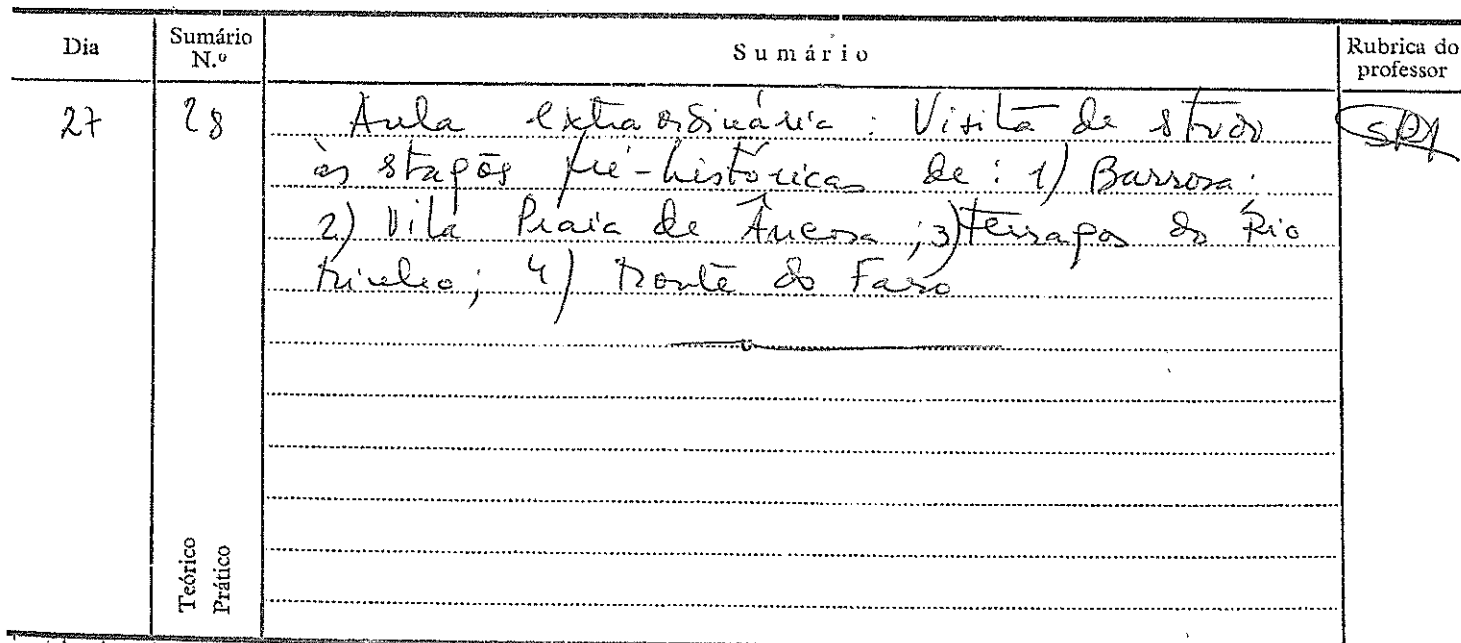 Dia
Sumário N.º
Sumário
Rubrica do professor
27
28
Aula extraordinária: Visita de studo
às stações pré-históricas de: 1) Barrosa;
2) Vila Praia de Âncora; 3) terraços do Rio
Minho; 4) Monte do Faro
Teórico
Prático